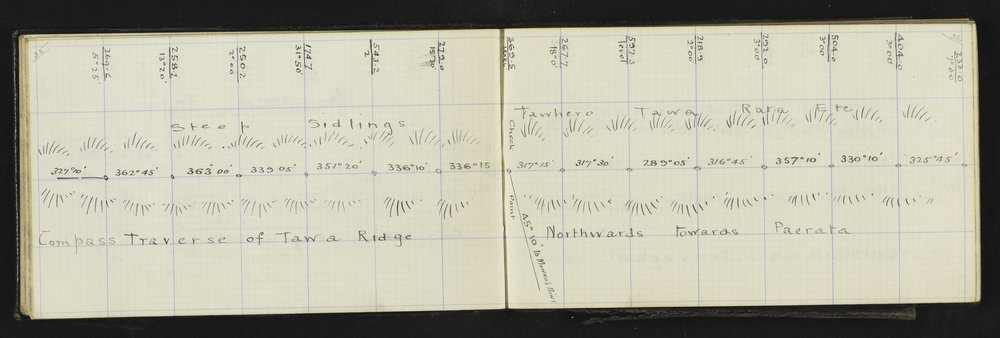 269.6
5°25'
258.2
13°20'
250.2
2°00
174.7
31°50'
543.2
2
279.0
15°20'
269.5
267.7
18°0'
597.3
level
218.9
2°00
292.0
3°00
504.0
3°00
404.0
3°00
233.0
7°00'
Steep Sidlings
Tawhero Tawa Rata Etc
327°10' 362°45' 363°00' 339°05' 351°20' 336°10' 336°15
317°15' 317°30' 289°05' 316°45' 357°10' 330°10' 325°45'
Check Point
45°10' to Munro's Point
Compass Traverse of Tawa Ridge
Northwards towards Paerata